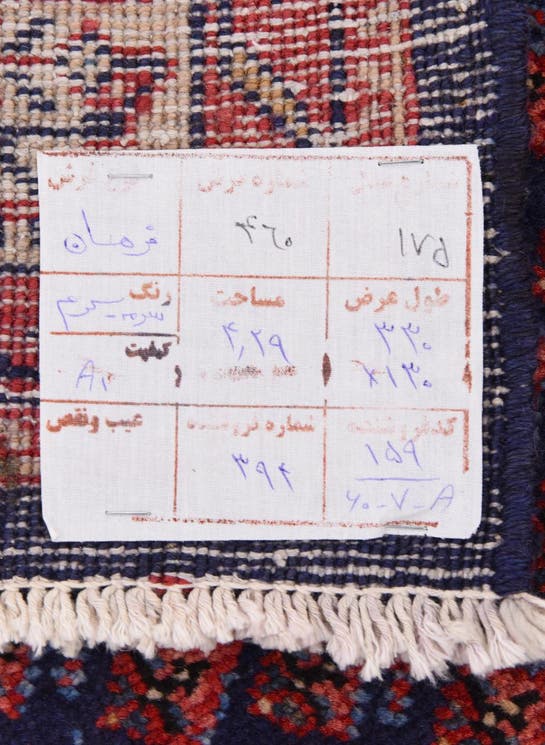 شماره فرش
نوع فرش
۱۷۵
۴۶۰
فرهان
طول عرض
مساحت
رنگ
۳۳۰
×۱۳۰
۴,۲۹
سرمه‌یی کرم
کیفیت
A۱
کد فروشنده
شماره فروشنده
عیب ونقص
۱۵۹
۶۰-۷-۸
۳۹۴